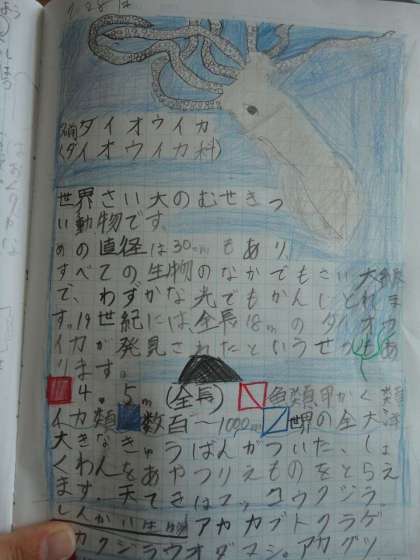 1/28
ダイオウイカ
(ダイオウイカ科)
世界さい大のむせきつ
い動物です。
めの直径は30cmもあり
すべての生物のなかでもさい大級
で、わずかな光でもかんじとれま
す。19世紀には、全長18mのダイオウ
イカが発見されたというせつもあ
ります。
4.5m(全長) 魚類甲かく類
イカ類 数百〜1000m 世界の全大洋
大きなきゅうばんがついた、しょ
くわんをあやつりえものをとらえ
ます。天てきはマッコウクジラ。
しんかいは アカカブトクラゲ
カクジラウオダマシ、アカグツ